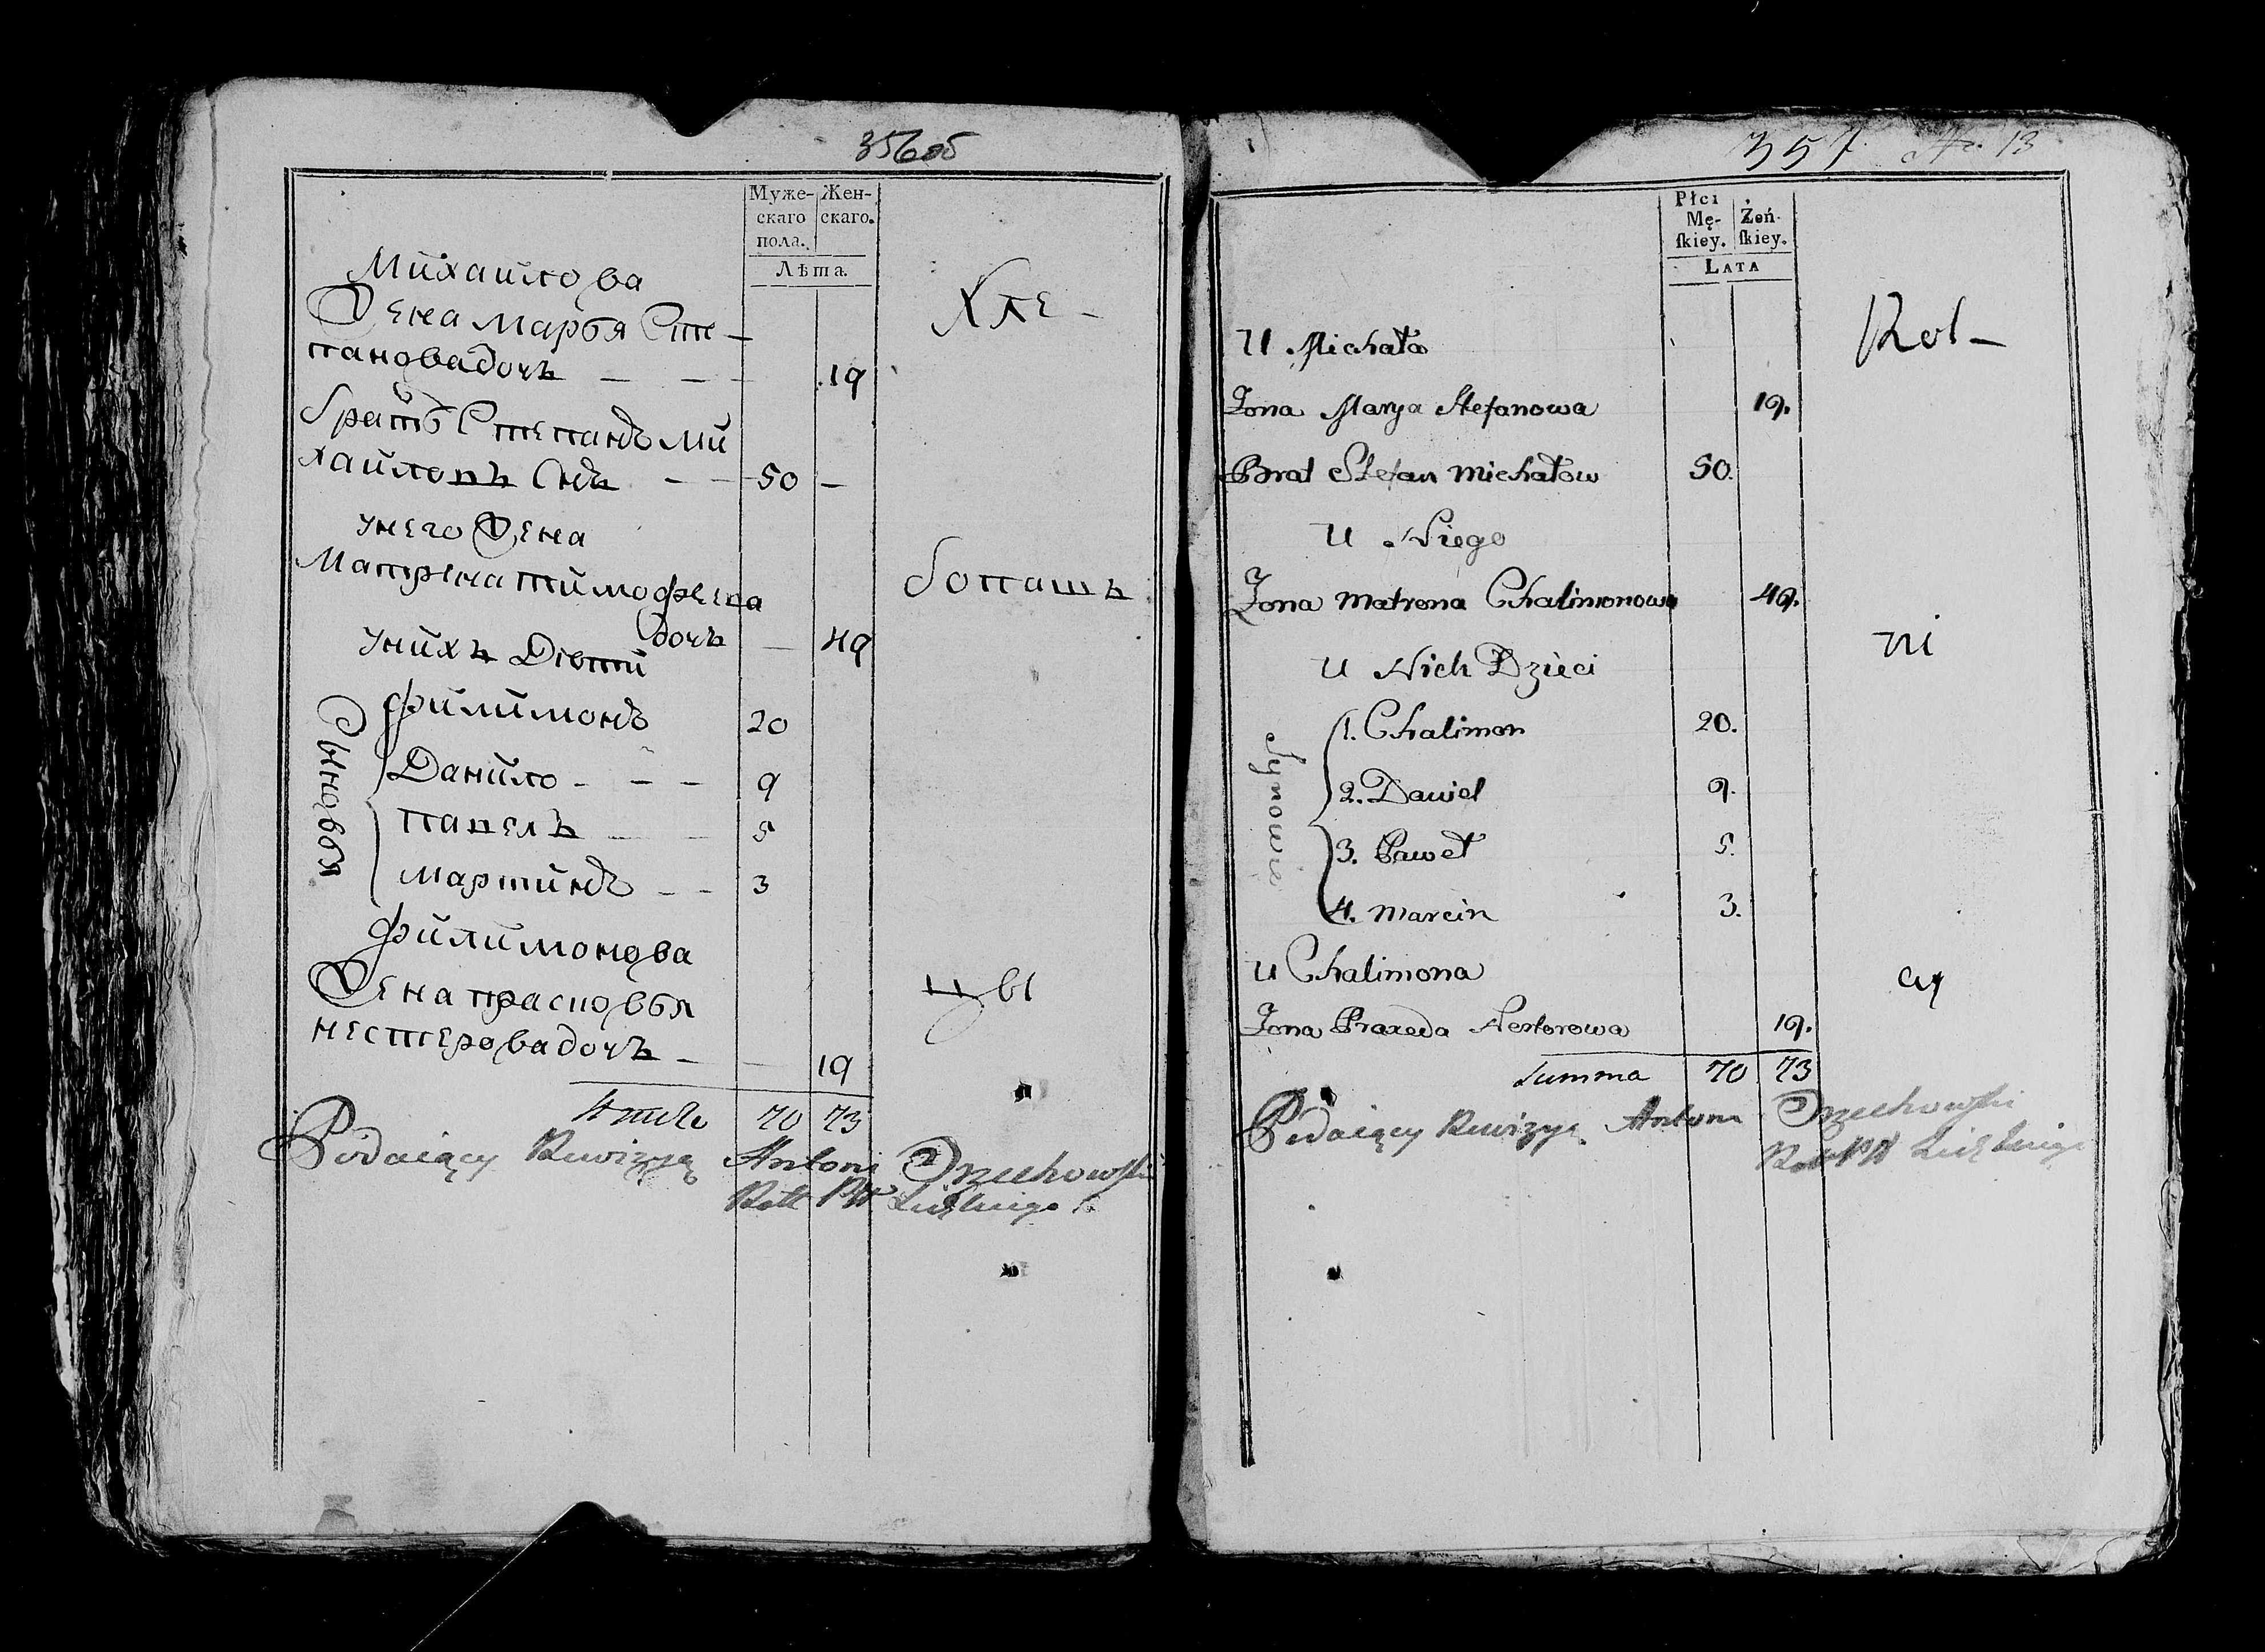 356об
Муже-
скаго
пола.
Жен-
скаго.
Лѣта.
Михайлова
Жена Марья Сте-
пановадочь — — — 19
Хле-
братъ Степанъ Ми
хайловъ Снъ — — 50 —
унего Жена
Матрена тимофеева
дочь — 49
бопашъ
унихъ Дѣти
Сыновья
филимонъ 20
Данило - - - 9
павелъ — — 5
мартинъ — — 3
филимонова
Жена прасковья
нестеровадочь — — 19
цы
Итого 70 73
Podaiący Rewizyą Antoni Orzechowski
Rott PW
357. No. 13
Płci
Mę-
ſkiey.
Żeń-
ſkiey.
LATA
U Michała
Rol-
Zona Marya Stefanowa 19.
Brat Stefan Michałow 50.
U Niego
Zona Matrona Chalimonowa 49.
ni
U Nich Dzieci
Synowie
1. Chalimon 20.
2. Daniel 9.
3. Paweł 5.
4. Marcin 3.
U Chalimona
cy
Zona Praxeda Nestorowa 19.
Summa 70 73
Podaiący Rewizyą Antoni Orzechowski
Rott PW